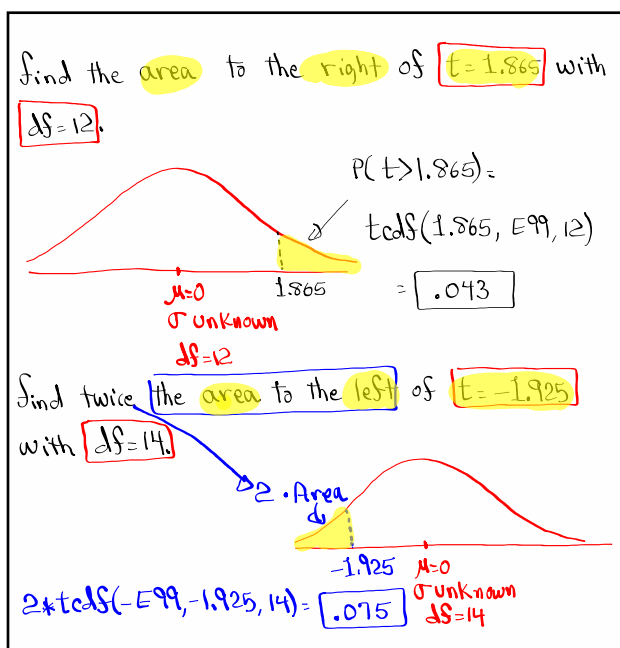 find the area to the right of t=1.865 with
df=12.
P(t>1.865)=
tcdf(1.865, E99, 12)
= .043
1.865
μ=0
σ unknown
df=12
find twice the area to the left of t=-1.925
with df=14.
2·Area
-1.925
μ=0
σ unknown
df=14
2*tcdf(-E99,-1.925,14)= .075